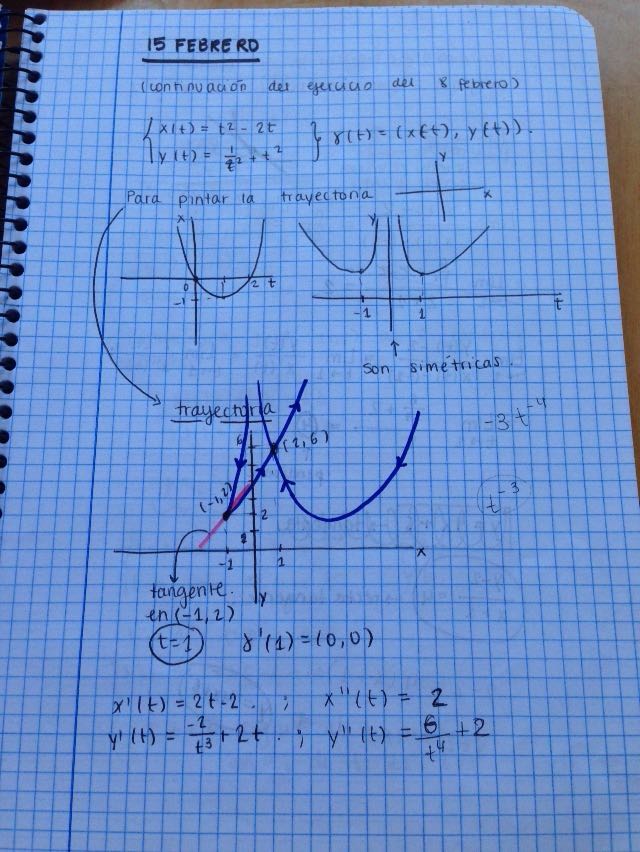 15 FEBRERO
(continuación del ejercicio del 8 febrero)
{ x(t) = t² - 2t
y(t) = 1/t² + t² } γ(t) = (x(t), y(t)).
Para pintar la trayectoria
y
x
x
0 1 2 t
-1
y
-1 1 t
son simétricas.
trayectoria
-3t⁻⁴
6
(2,6)
t⁻³
(-1,2)
2
1
-1 1 x
y
tangente
en (-1,2)
t=1 γ'(1) = (0,0)
x'(t) = 2t-2 . ; x''(t) = 2
y'(t) = -2/t³ + 2t . ; y''(t) = 6/t⁴ + 2